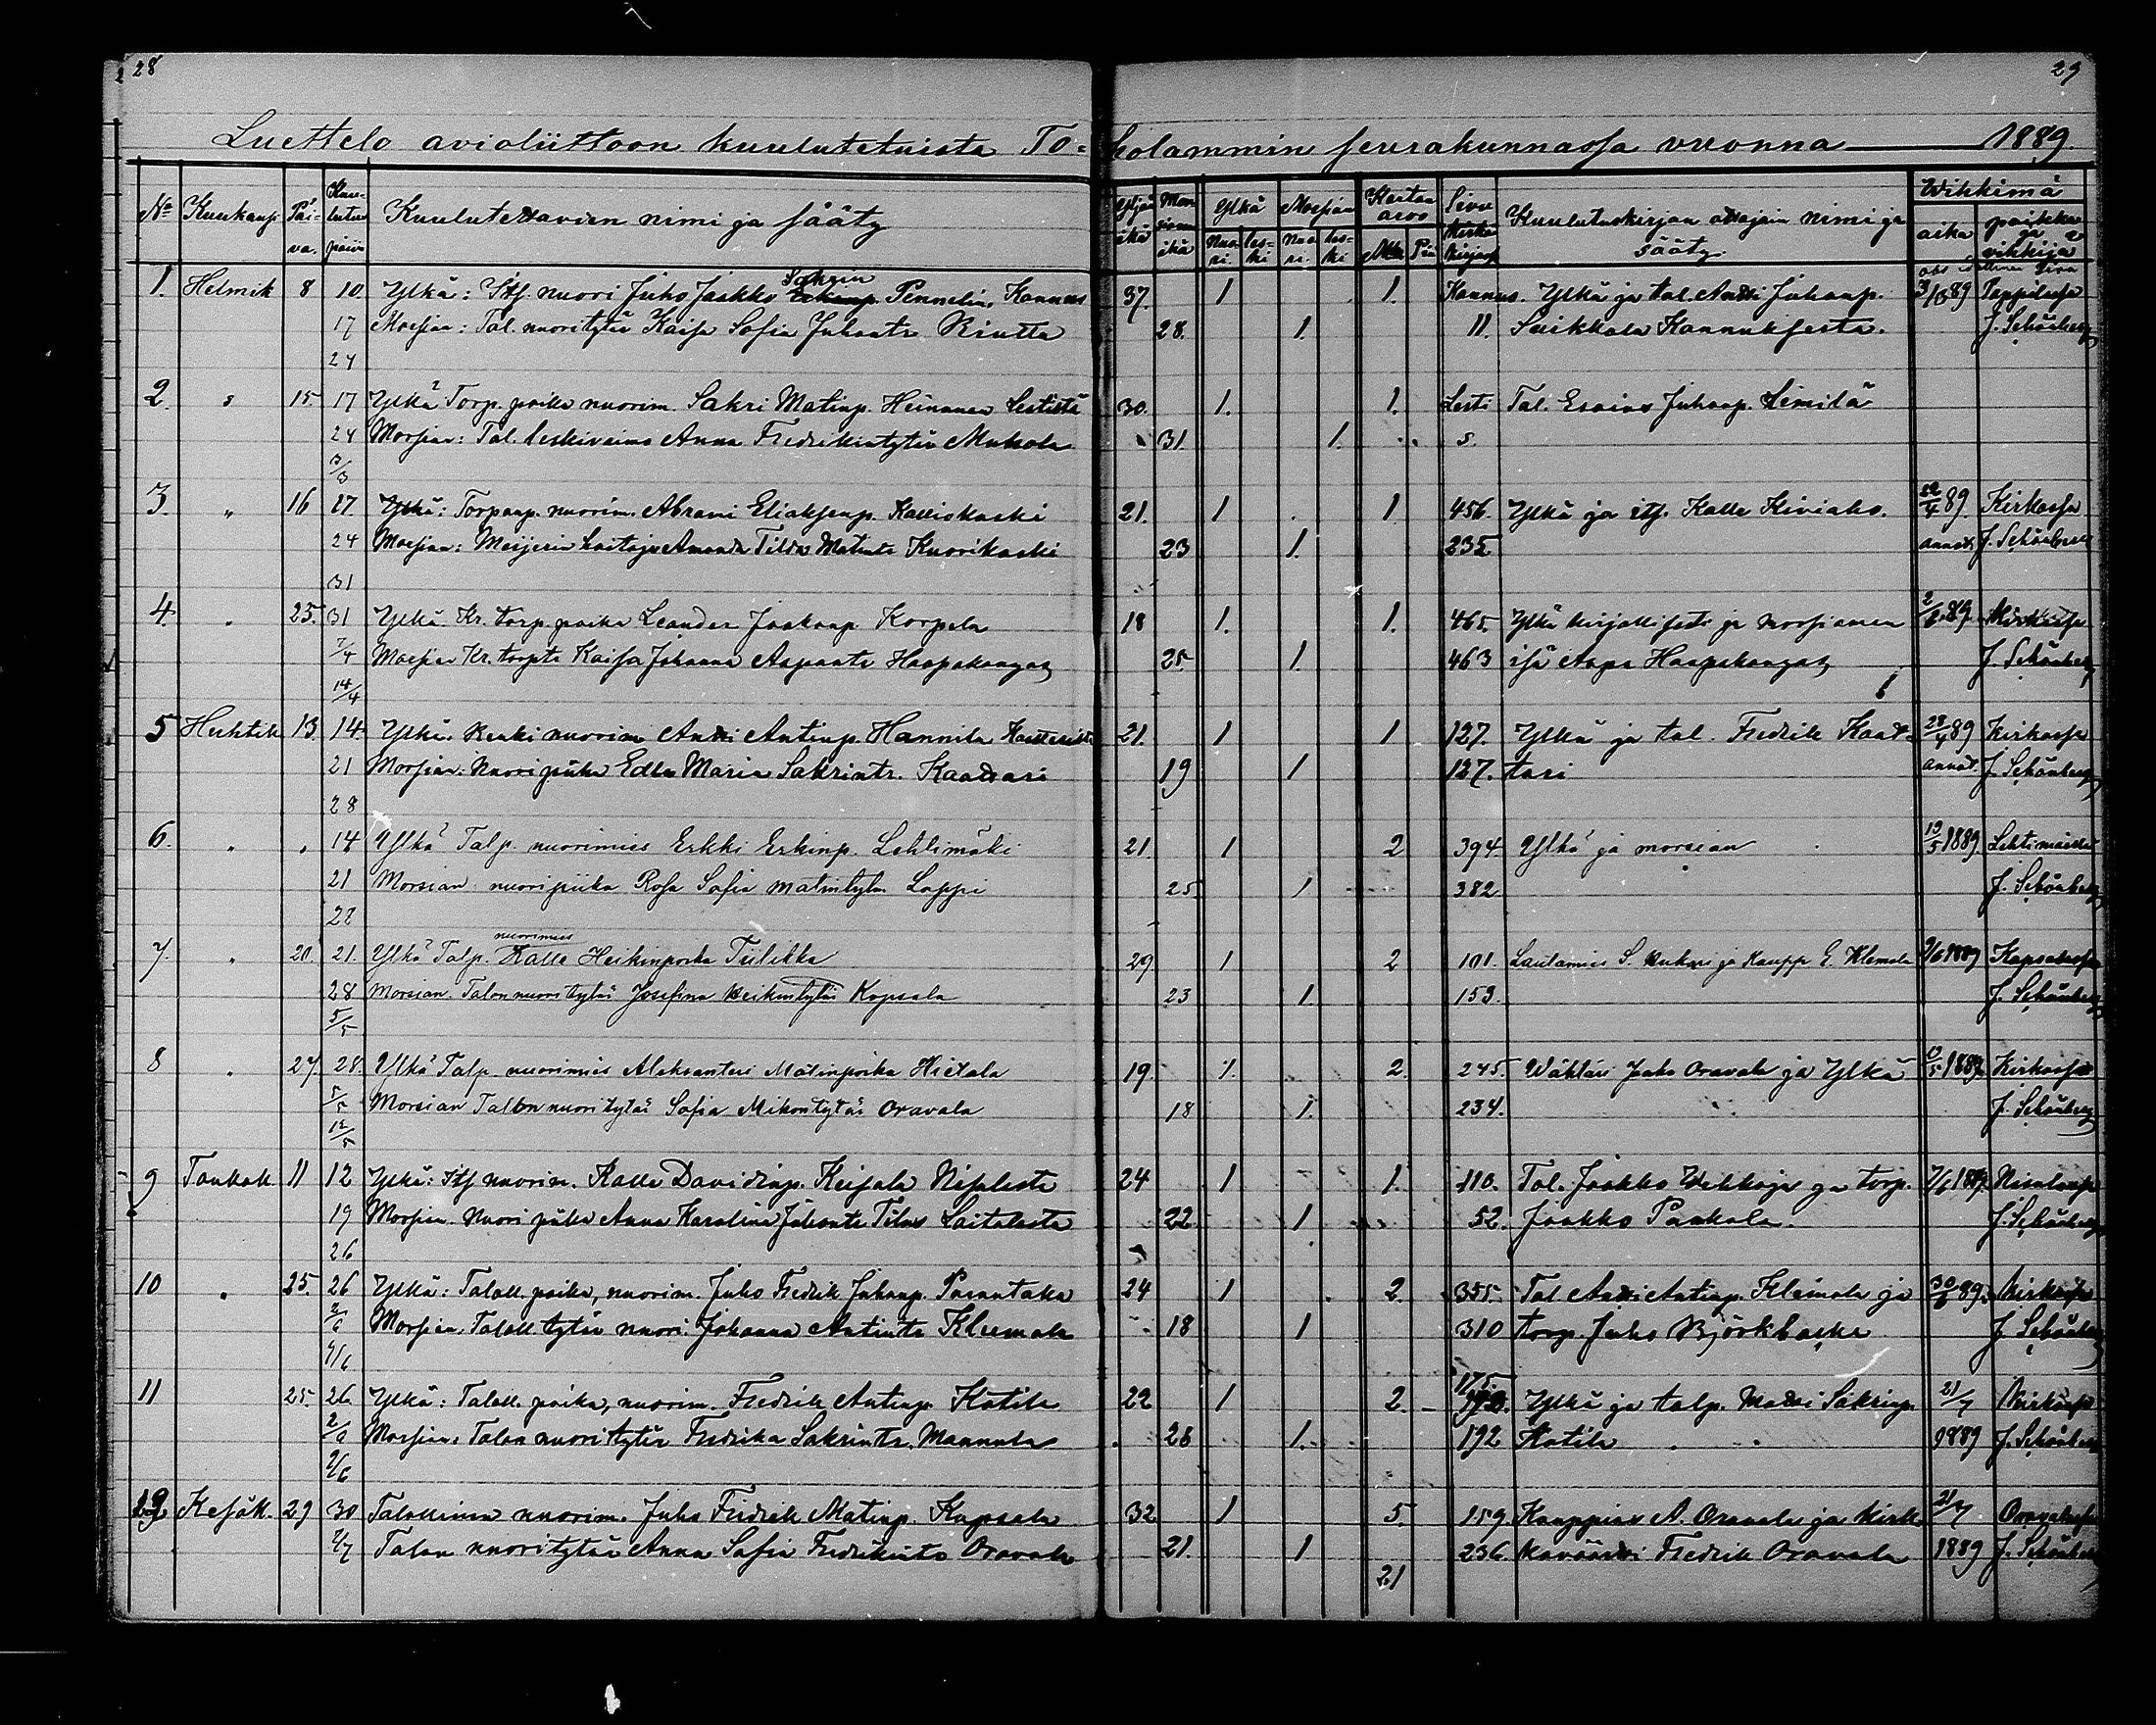 28
29
Luettelo avioliittoon kuulutetuista To= holammin seurakunnassa vuonna 1889.
No Kuukaup. Päi-va. Kuu-lutus päivä Kuulutettavien nimi ja sääty Yljän ikä Mor-siamen ikä Ylkä Nuo-ri. les-ki Morsian Nuo-ri. les-ki Sivu Kirkon kirjassa Kuulutuskirjan ottajain nimi ja sääty. Wihkimä aika paikka ja vihkijä
1. Helmik 8 10. Ylkä: Its. nuori Juho Jaakko Sakrin Pennelin, Kannus 37. 1 1. Kannus. Ylkä ja tal. Antti Juhanp. 89
17 Morsian: Tal. nuori tytär Kaisa Sofia Juhontr Riutta 28. 1. 11. Suikkola Kannuksesta. J. Schönberg
24
2. 15. 17 Ylkä Torp. poika nuorim. Sakri Matinp. Heinonen Lestistä 30. 1. 1. Lesti Tal. Esaias Juhanp.
24 Morsian: Tal. leskivaimo Anna Fredrikintytär 31. 1. 5.
3/3
3. " 16 17. Ylkä: Torpanp. nuorim. Abrami Eliaksenp. Kalliokoski 21. 1 1 456. Ylkä ja its. Kalle Kiviaho. 22/4 89. Kirkossa
24 Morsian: Meijerin hoitaja Amanda Tilda Matintr Kuorikoski 23 1. 235. J. Schönberg
31
4. 25. 31 Ylkä. Kr. torp. poika Leander Jaakonp Korpela 18 1. 1. 465. Ylkä kirjallisesti ja morsiamen 89. Kirkossa
7/4 Morsian Kr. torp. tr Kaisa Johanna Aapontr Haapakangas 25. 1. 463 isä Aapo Haapakangas J. Schönberg
14/4
5 Huhtik. 13. 14. Ylkä. Renki nuorim. Antti Antinp. Hannila 21. 1 1 127. Ylkä ja tal. Fredrik Kaat- 28/4 89 Kirkossa
21 Morsian. Nuori piika Edla Maria Sakrintr. Kaattari 19 1 127. tari J. Schönberg
28
6. " " 14 Ylkä Talp. nuorimies Erkki Erkinp. Lehtimäki 21. 1 2 394. Ylkä ja morsian 19/5 1889. Lehtimäellä
21 Morsian nuori piika Rosa Sofia matintytär Lappi 25. 1 382. J. Schönberg
28
7. " 20. 21. Ylkä Talp. nuorimies Kalle Heikinpoika Tiilikka 29 1 2 101. Lautamies S. ja Kaupp E. Klemola 9/6 1889 Kopsalassa
28 Morsian. Talon nuori tytär Josefina Heikintytär Kopsala 23 1 159. J. Schönberg
5/5
8 " 27. 28. Ylkä Talp. nuorimies Aleksanteri Matinpoika Hietala 19. 1. 2. 245. Wähtäri Jaako Oravala ja Ylkä 1889. Kirkossa
5/5 Morsian Talon nuori tytär Sofia Mikontytär Oravala 18 1. 234. J. Schönberg
12/5
9 Toukok. 11 12 Ylkä: Its nuorim. Kalle Davidinp. Keisala 24 1 1. 110. Tal. Jaakko ja torp. 1889.
19 Morsian. Nuori piika Anna Karolina Juhontr Tilus Laitalasta 22 1 52. Jaakko Pankola. J. Schönberg
26
10 " 25. 26 Ylkä: Talok. poika, nuorim. Juho Fredrik Juhanp. Parantala 24 1 2. 355. Tal. Antti Antinp. Klemola ja 30/6 89. Kirkossa
2/6 Morsian. Talok. tytär nuori Johanna Antintr Kleemola 18 1 310 torp. Juho Björkbacka J. Schönberg
9/6
11 25. 26. Ylkä: Talok. poika, nuorim. Fredrik Antinp. Kotila 22 1 2. 175 Ylkä ja talp. Matti Sakrinp. 21/7 Kirkossa
2/6 Morsian: Talon nuori tytär Fredrika Sakrintr. Mannula 26 1. 192 Kotila 1889 J. Schönberg
9/6
12. Kesäk. 29 30 Talollinen nuorim. Juho Fredrik Matinp. Kopsala 32 1 5. 159. Kauppias A. Oravala ja kirk- 21/7 Oravalassa
Talon nuori tytär Anna Sofia Fredrikintr Oravala 21. 1 236. koväärti Fredrik Oravala 1889 J. Schönberg
21